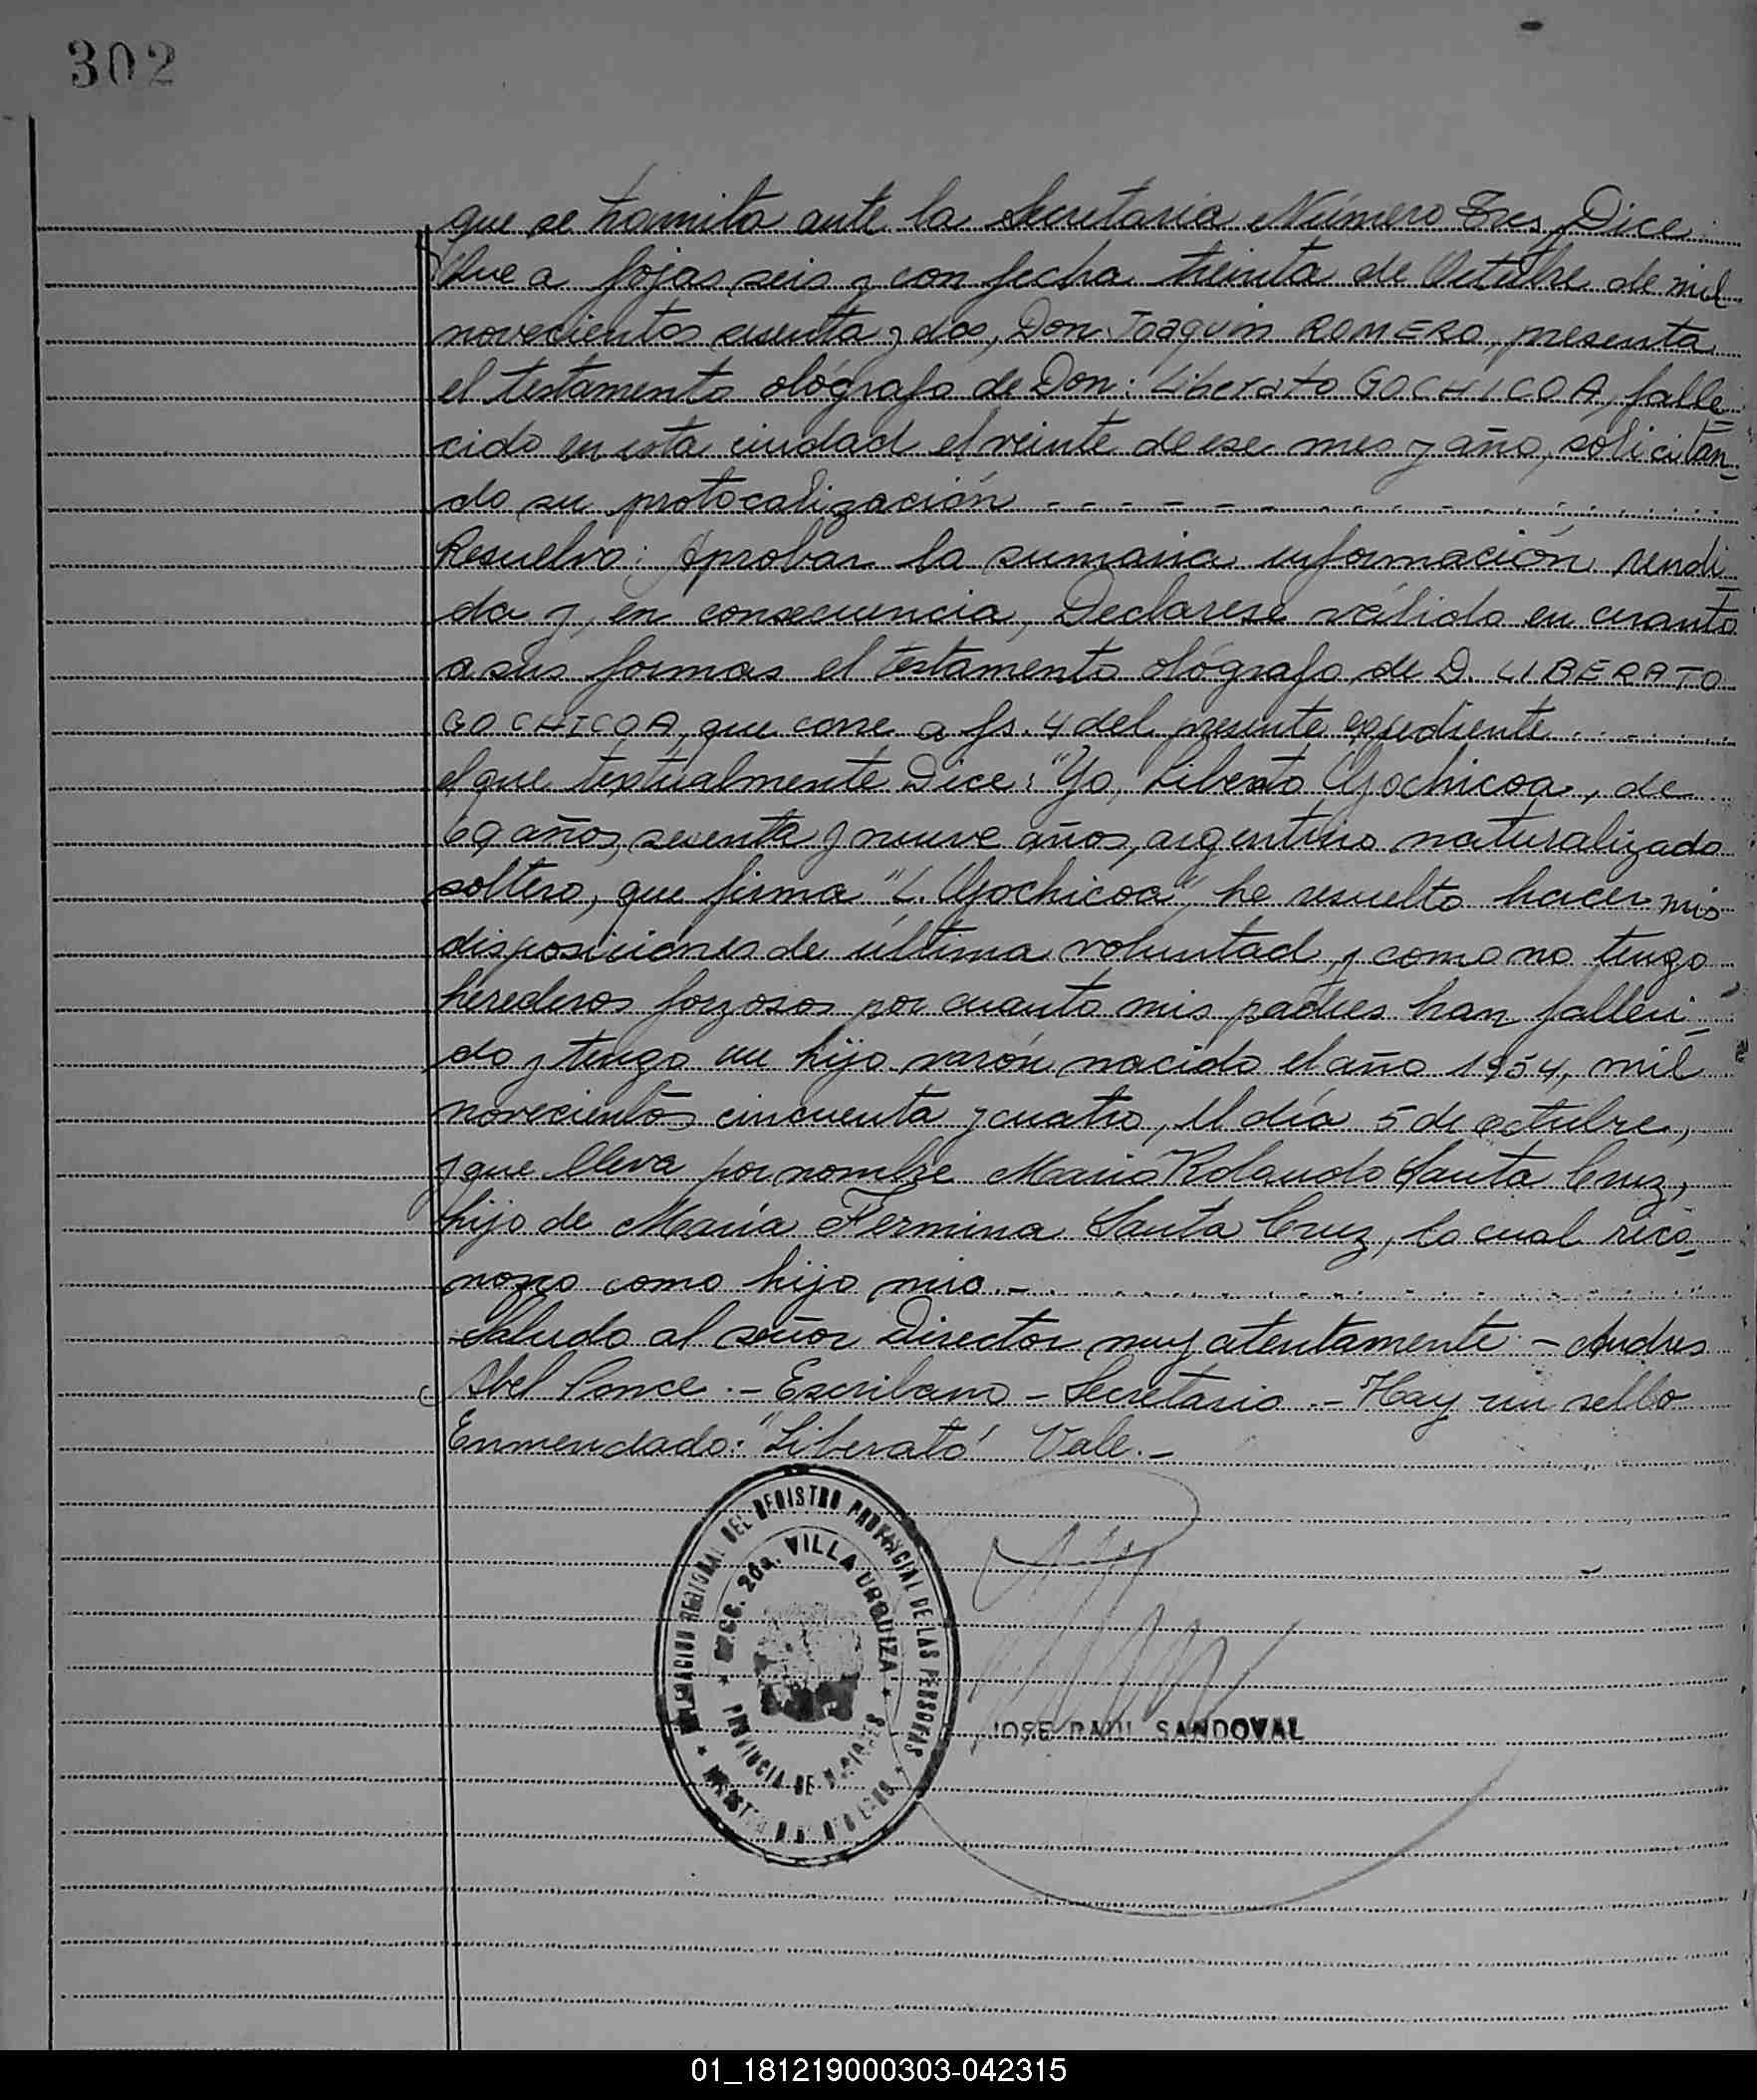 302
que se tramita ante la Secretaria Número Tres, Dice:
Que a fojas seis y con fecha treinta de Octubre de mil
novecientos sesenta y dos, Don Joaquin ROMERO, presenta
el testamento ológrafo de Don: Liberato GOCHICOA, falle_
cido en esta ciudad el veinte de ese mes y año, solicitan_
do su protocalización - - - - - -
Resuelvo: Aprobar la sumaria información rendi_
da y, en consecuencia, Declarese válido en cuanto
a sus formas el testamento ológrafo de D. LIBERATO
GOCHICOA, que corre a fs. 4 del presente expediente
el que textualmente Dice: "Yo, Liberato Gochicoa, de
69 años, sesenta y nueve años, argentino naturalizado
soltero, que firma "L. Gochicoa", he resuelto hacer mis
disposiciones de última voluntad, y como no tengo
herederos forzosos por cuanto mis padres han falleci_
do y tengo un hijo varón nacido el año 1954, mil
novecientos cincuenta y cuatro, el día 5 de octubre,
y que lleva por nombre Mario Rolando Santa Cruz,
hijo de María Fermina Santa Cruz, lo cual reco_
nozco como hijo mio.-
Saludo al señor Director muy atentamente - Andres
Abel Ponce.- Escribano - Secretario.- Hay un sello
Enmendado: "Liberato" Vale.-
DEL REGISTRO PROVINCIAL DE LAS PERSONAS
SEC. 20a. VILLA URQUIZA
PROVINCIA DE MISIONES
JOSE RAUL SANDOVAL
01_181219000303-042315